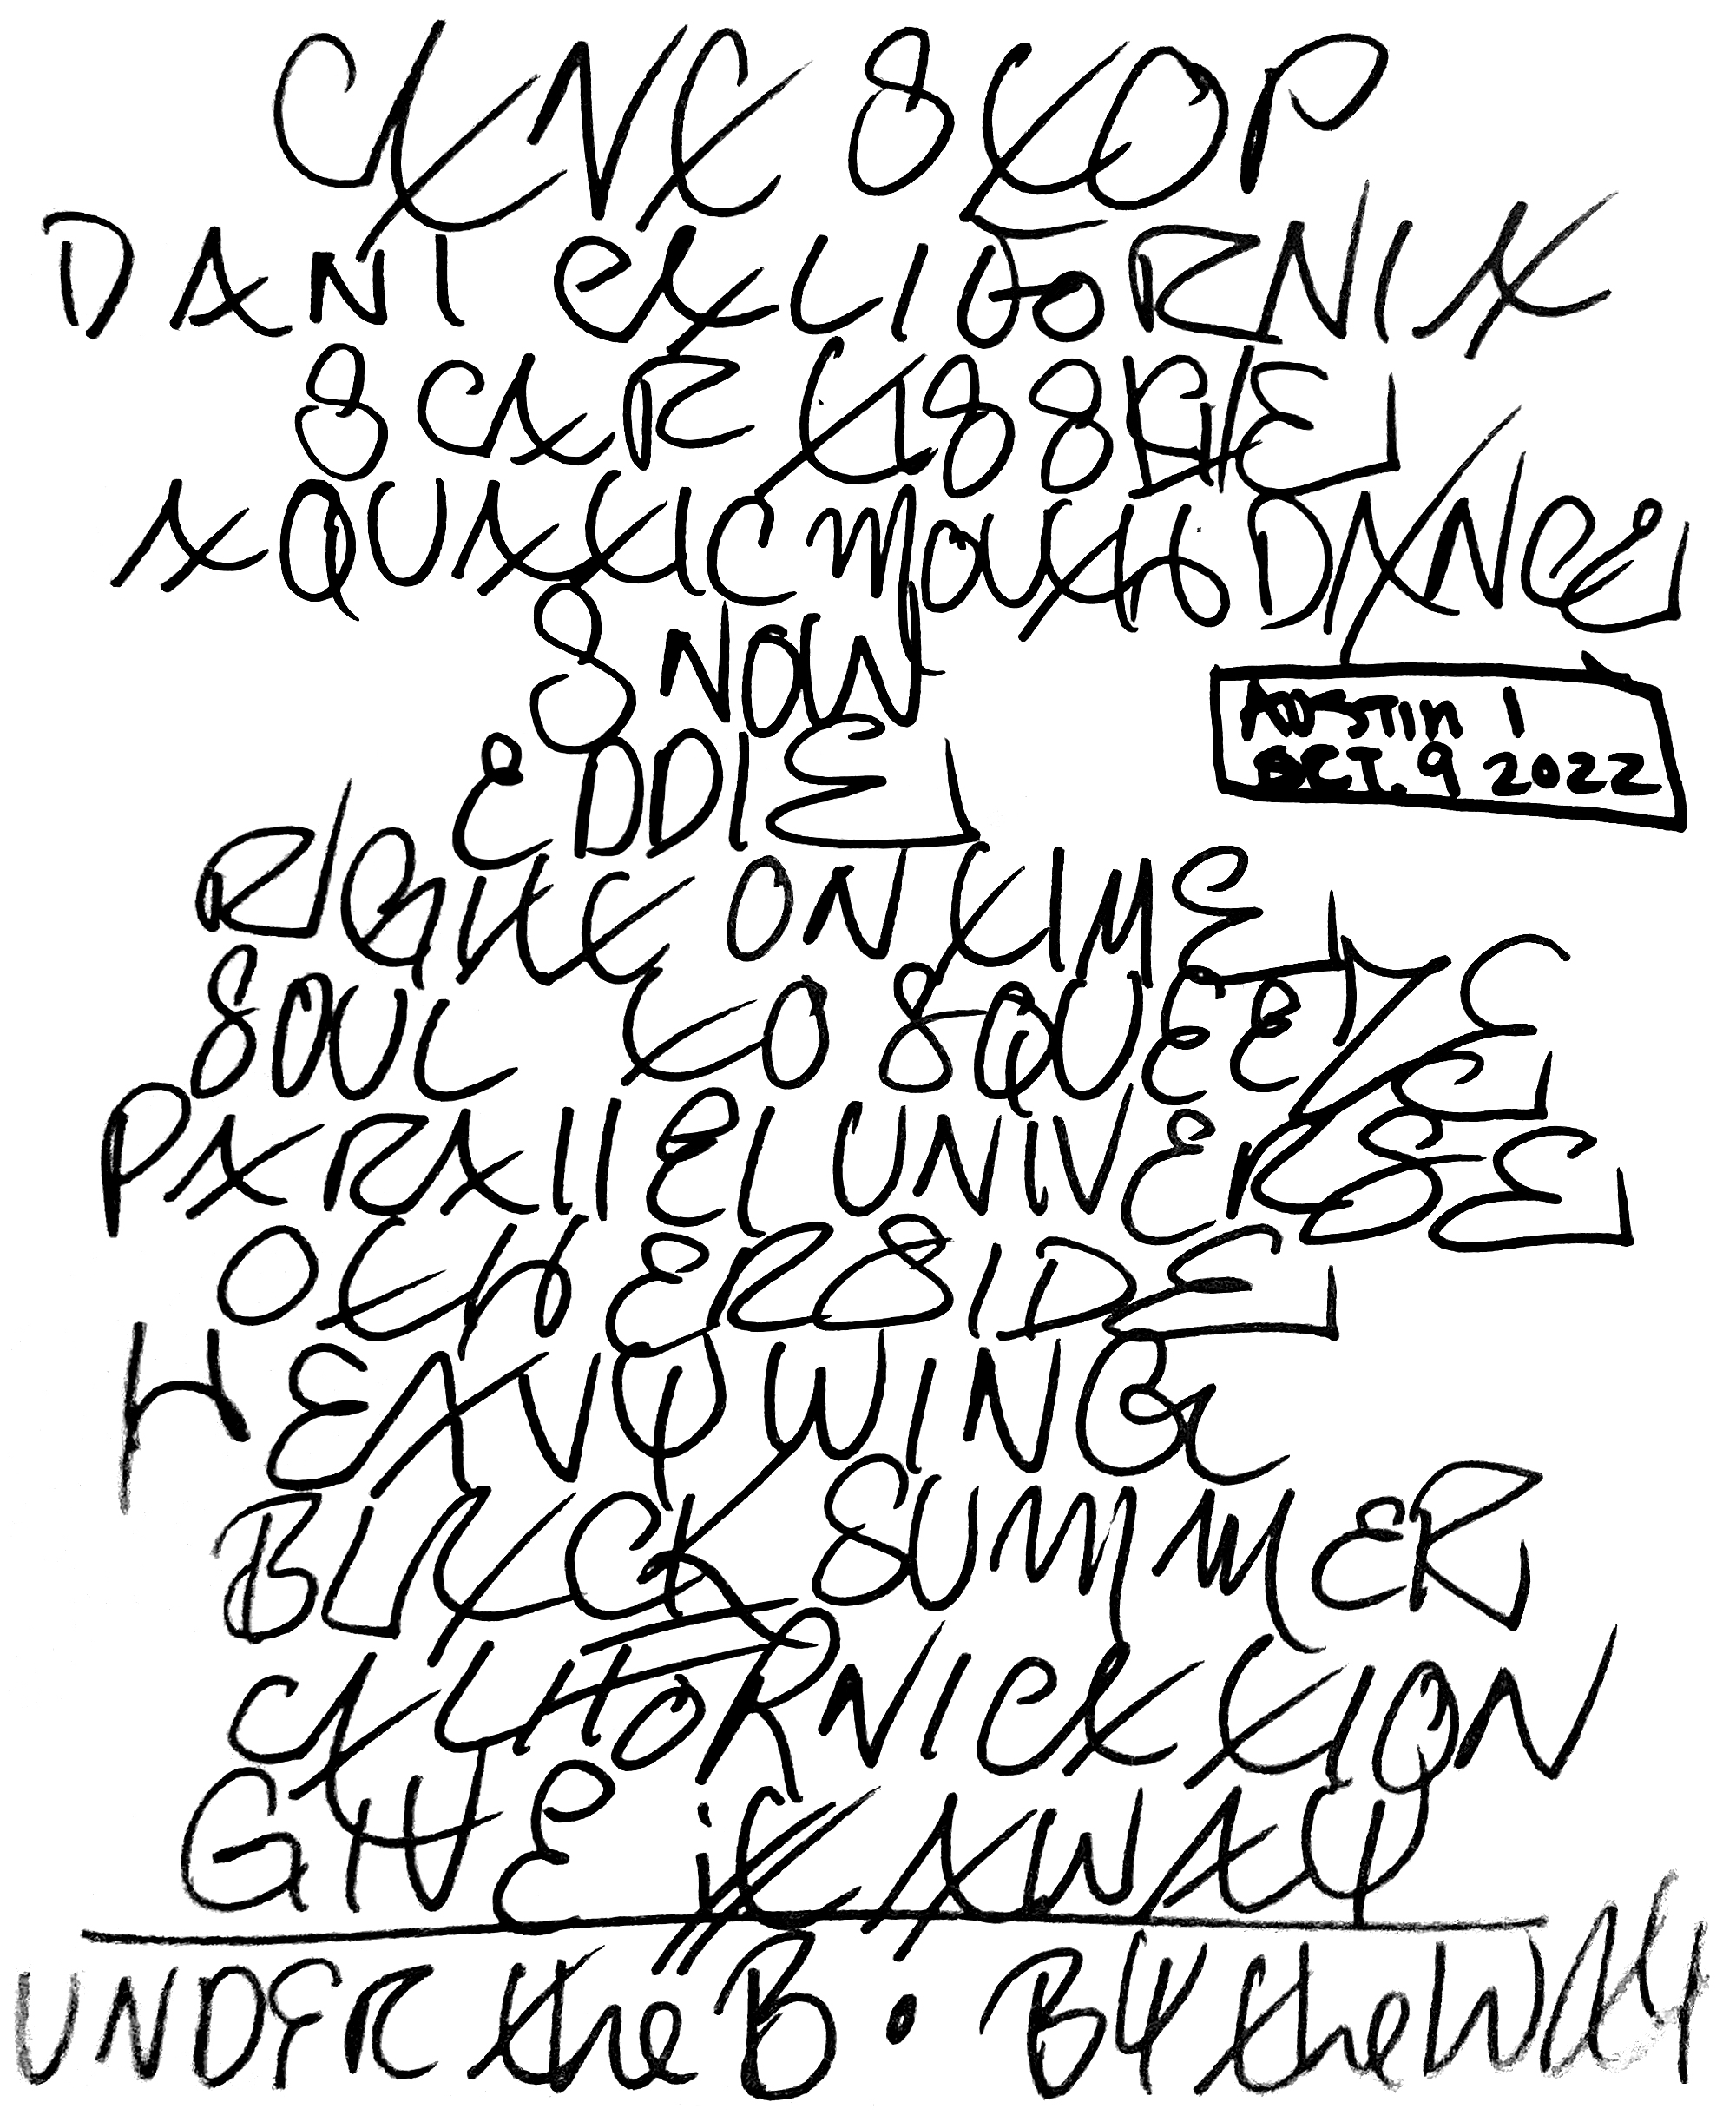 CAN'T STOP
DANI CALIFORNIA
SCAR TISSUE
AQUATIC MOUTH DANCE
SNOW
AUSTIN 1
OCT. 9 2022
EDDIE
RIGHT ON TIME
SOUL TO SQUEEZE
PARALLEL UNIVERSE
OTHERSIDE
HEAVY WING
BLACK SUMMER
CALIFORNICATION
GIVE it AWAY
UNDER the B • BY the WAY